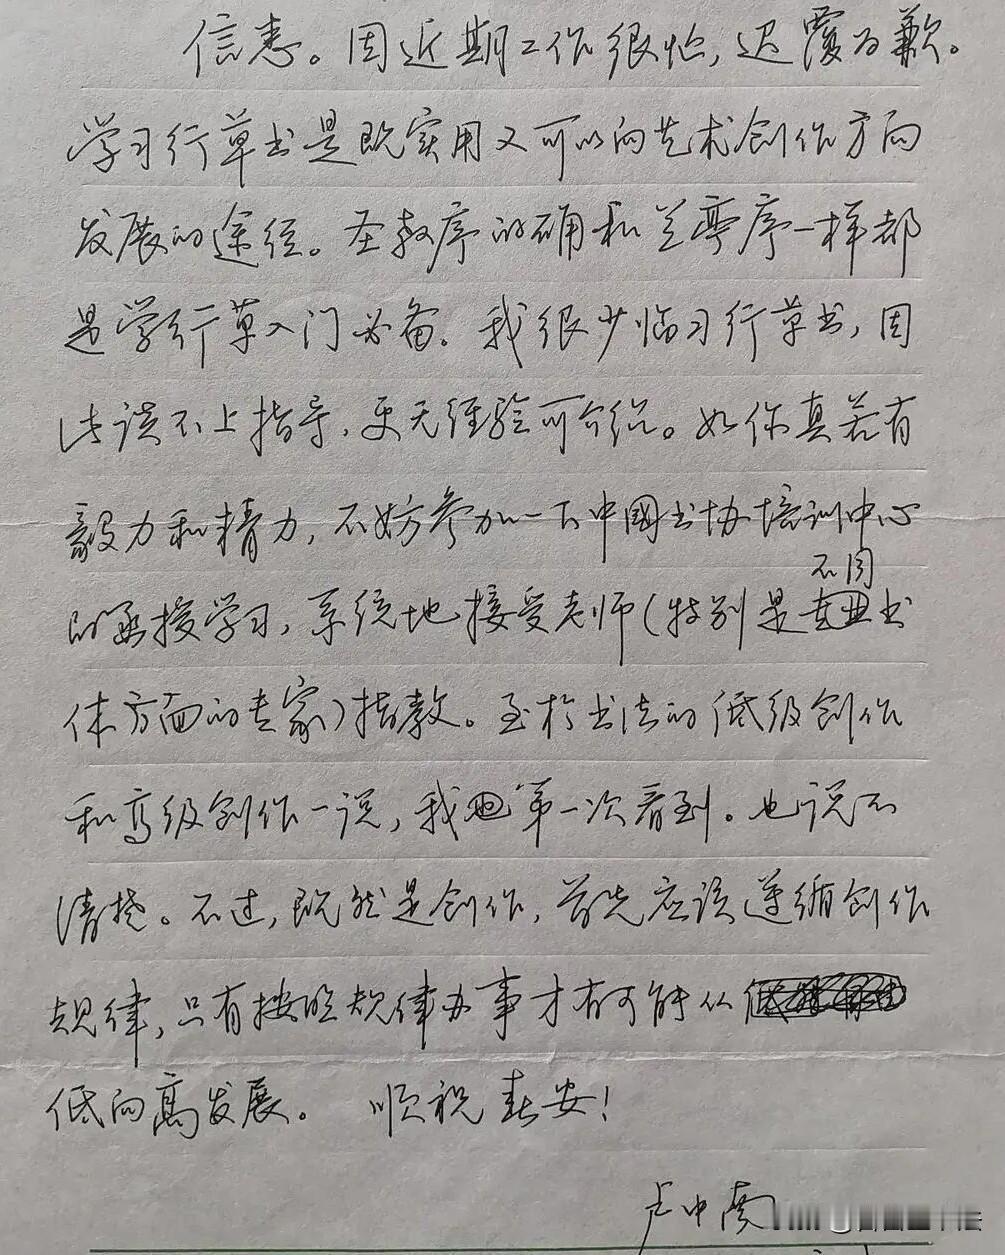 信悉。因近期工作很忙，迟覆为歉。
学习行草书是既实用又可以向艺术创作方向
发展的途径。圣教序的确和兰亭序一样都
是学行草入门必备。我很少临习行草书，因
此谈不上指导，更无经验可介绍。如你真若有
毅力和精力，不妨参加一下中国书协培训中心
的函授学习，系统地接受老师（特别是不同书
体方面的专家）指教。至於书法的低级创作
和高级创作一说，我也第一次看到。也说不
清楚。不过，既然是创作，首先应该遵循创作
规律，只有按照规律办事才有可能从
低向高发展。 顺祝春安！
卢中南